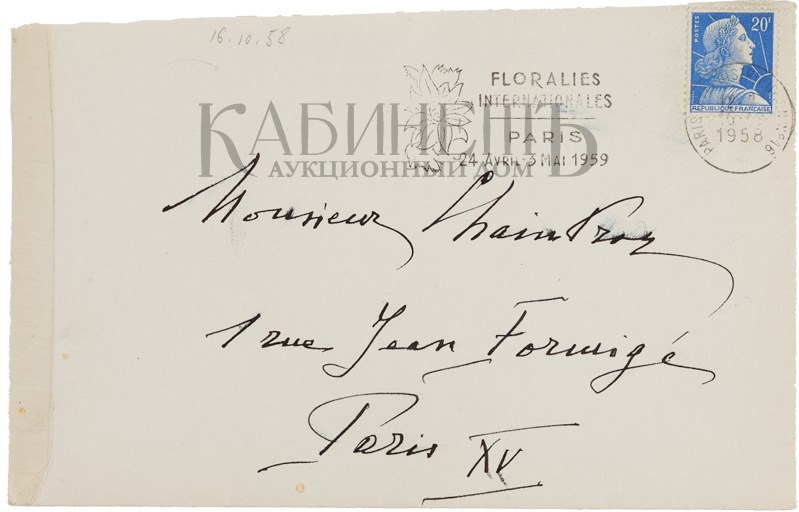 16.10.58
FLORALIES
INTERNATIONALES
PARIS
24 AVRIL-3 MAI 1959
POSTES
20F
REPUBLIQUE FRANCAISE
PARIS
1958
КАБИНЕТЪ
АУКЦИОННЫЙ ДОМ
Monsieur
1 rue Jean Formigé
Paris XV